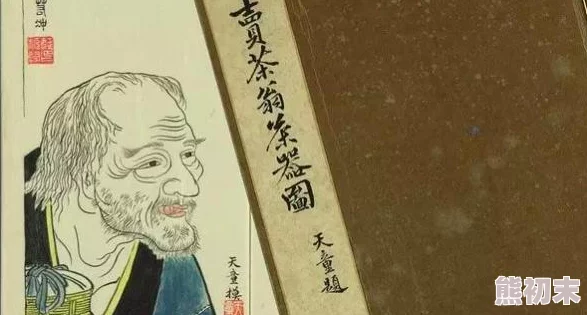 賣茶翁茶器圖
天童題
天童模
熊初末